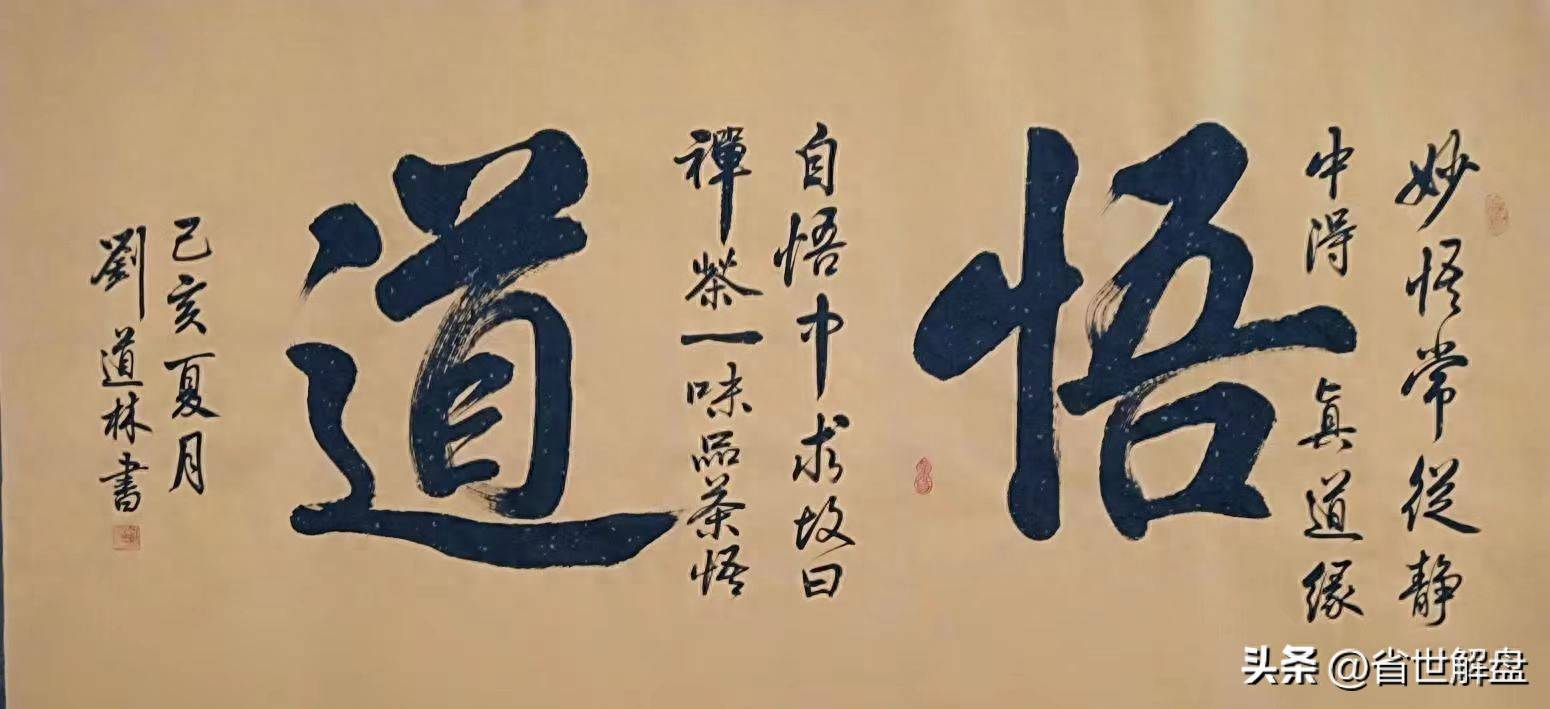 妙悟常從靜
中得真道緣
悟
自悟中求故曰
禪茶一味品茶悟
道
己亥夏月
劉道林書
头条 @省世解盘